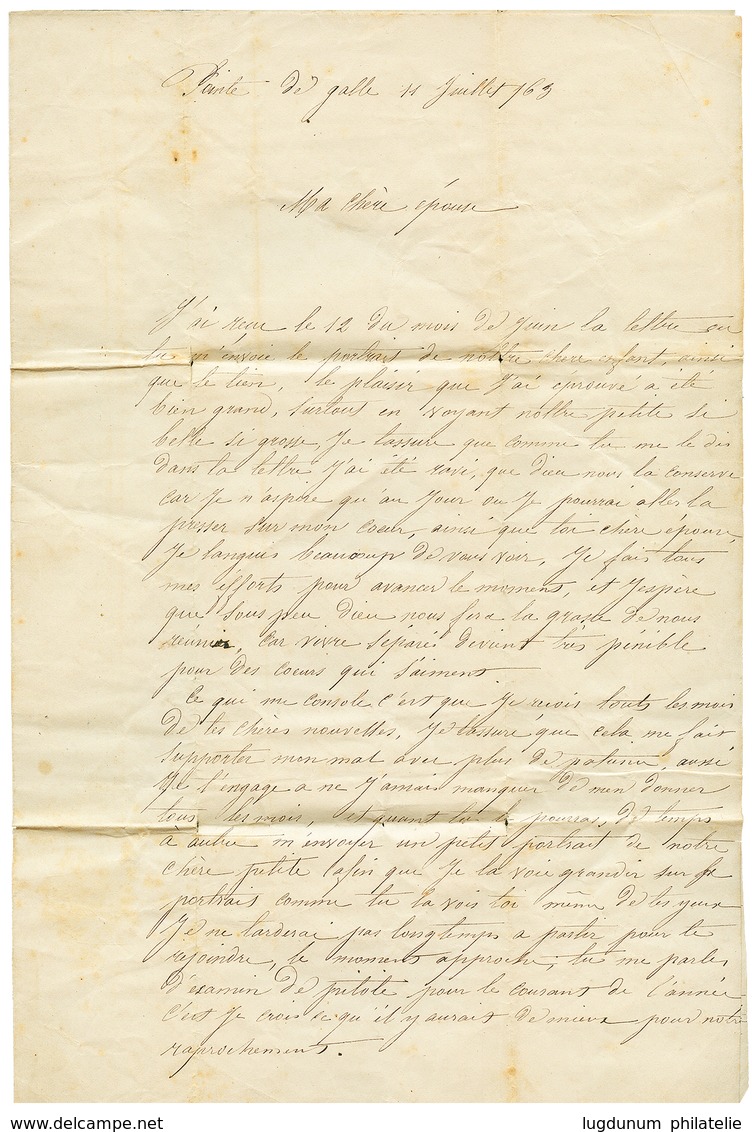 Pointe de galle 11 Juillet 1863
Ma chère épouse
J'ai reçu le 12 du mois de Juin la lettre ou
tu m'envoie le portrait de nottre chere enfant, ainsi
que le tien, le plaisir que J'ai éprouvé a été
bien grand, surtout en voyant nottre petite si
belle si grosse, Je tassure que comme tu me le dis
dans ta lettre J'ai été ravi, que dieu nous la conserve
car Je n'aspire qu'au Jour ou Je pourrai aller la
presser sur mon coeur, ainsi que toi chère epouse,
Je languis beaucoup de vous voir, Je fais tous
mes éfforts pour avancer le moment, et J'espère
que sous peu dieu nous fera la grasse de nous
reunir, car vivre séparé devient très pénible
pour des coeurs qui s'aiment.
Ce qui me console c'est que Je reçois touts les mois
de tes chères nouvelles, Je tassure que cela me fait
supporter mon mal avec plus de patience, aussi
Je t'engage a ne J'amais manquer de men donner
tous les mois, et quant tu le pourras, de temps
à autre m'envoyer un petit portrait de notre
chère petite afin que Je la voie grandir sur le
portrait comme tu la vois toi même de tes yeux
Je ne tarderai pas longtemps a partir pour te
rejoindre, le moment approche, tu me parles
d'éxamin de pilote pour le courant de l'année
c'est Je crois se qu'il y aurait de mieux pour notre
raprochement.
lugdunum philatelie
www.delcampe.net